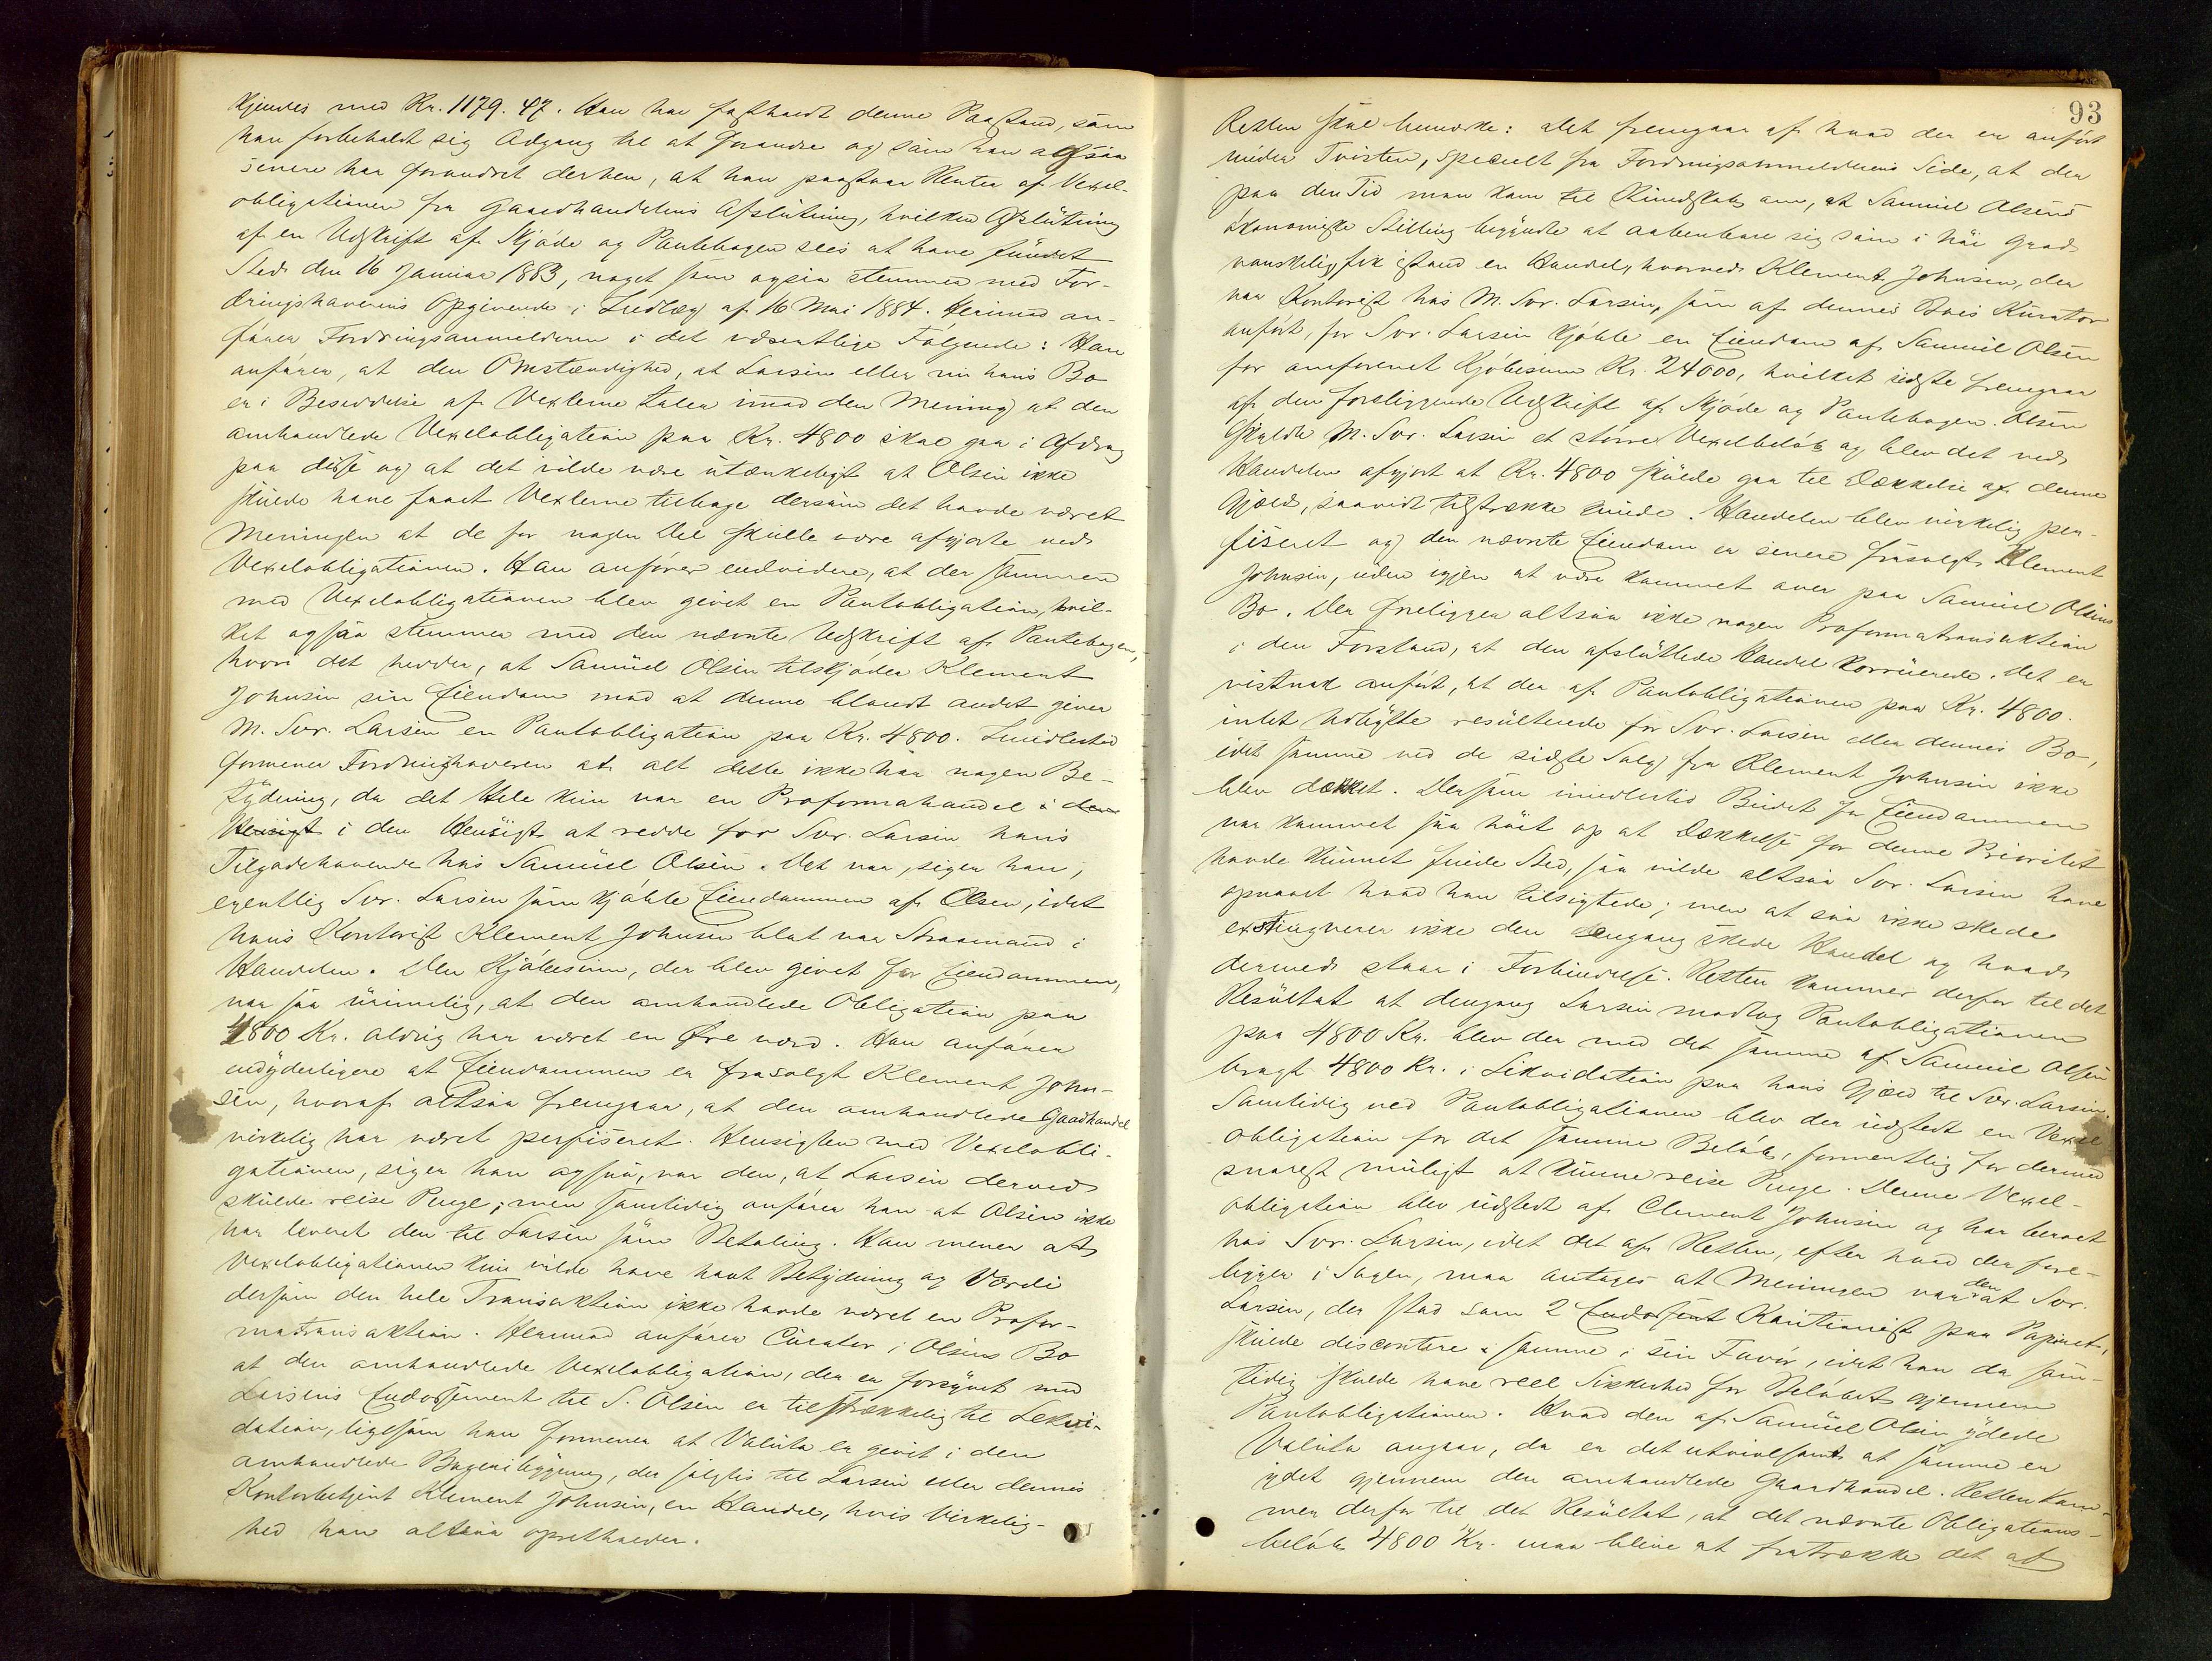 kjendes med Kr. 1179.47. Han har fastholdt denne Paastand, som
han forbeholdt sig Adgang til at forandre og som han ogsaa
senere har forandret derhen, at han paastaar Renter af Vexel-
obligationen fra Gaardhandelens Afslutning, hvilken Afslutning
af en Udskrift af Skjøde og Pantebogen sees at have fundet
Sted den 16 Januar 1883, noget som ogsaa stemmer med For-
dringshaverens Opgivende i Indlæg af 16 Mai 1884. Herimod an-
fører Fordringsanmelderen i det væsentlige Følgende: Han
anfører, at den Omstændighed, at Larsen eller nu hans Bo
er i Besiddelse af Vexlerne taler imod den Mening at den
omhandlede Vexelobligation paa Kr. 4800 skal gaa i Afdrag
paa disse og at det vilde være utænkeligt at Olsen ikke
skulde have faaet Vexlerne tilbage dersom det havde været
Meningen at de for nogen Del skulle være afgjorte ved
Vexelobligationen. Han anfører endvidere, at der sammen
med Vexelobligationen blev givet en Pantobligation, hvil-
ket ogsaa stemmer med den nævnte Udskrift af Pantebogen,
hvori det hedder, at Samuel Olsen tilskjøder Klement
Johnsen sin Eiendom mod at denne blandt andet giver
M. Svr. Larsen en Pantobligation paa Kr. 4800. Imidlertid
formener Fordringshaveren at alt dette ikke har nogen Be-
tydning, da det Hele kun var en Proformahandel i den
Hensigt i den Hensigt at redde for Svr. Larsen hans
Tilgodehavende hos Samuel Olsen. Det var, siger han,
egentlig Svr. Larsen som kjøbte Eiendommen af Olsen, idet
hans Kontorist Klement Johnsen blot var Straamand i
Handelen. Den Kjøbesum, der blev givet for Eiendommen,
var saa urimelig, at den omhandlede Obligation paa
4800 Kr. aldrig har været en Øre værd. Han anfører
endyderligere at Eiendommen er frasolgt Klement John-
sen, hvoraf altsaa fremgaar, at den omhandlede Gaardhandel
virkelig har været perfiseret. Hensigten med Vexelobli-
gationen, siger han ogsaa, var den, at Larsen derved
skulde reise Penge; men samtidig anfører han at Olsen ikke
har leveret den til Larsen som Betaling. Han mener at
Vexelobligationen kun vilde have havt Betydning og Værdi
dersom den hele Transaktion ikke havde været en Profor-
matransaktion. Hermod anfører Curator i Olsens Bo
at den omhandlede Vexelobligation, der er forsynet med
Larsens Endossement til S. Olsen er tilstrækkelig til Lekvi-
dation, ligesom han formener at Valuta er givet i den
omhandlede Bageribygning, der solgtes til Larsen eller dennes
Kontorbetjent Klement Johnsen, en Handel, hvis Virkelig-
hed han altsaa opretholder.
93
Retten skal bemærke: Det fremgaar af hvad der er anført
under Tvisten, specielt fra Fordringsanmelderens Side, at der
paa den Tid man kom til Kundskab om, at Samuel Olsens
økonomiske Stilling begyndte at aabenbare sig som i høi Grad
vanskelig, fik istand en Handel, hvorved Klement Johnsen, der
var Kontorist hos M. Svr. Larsen, som af dennes Bois Kurator
anført, for Svr. Larsen kjøbte en Eiendom af Samuel Olsen
for omforenet Kjøbesum Kr. 24000, hvilket sidste fremgaar
af den foreliggende Udskrift af Skjøde og Pantebogen. Olsen
skyldte M. Svr. Larsen et større Vexelbeløb og blev det ved
Handelen afgjort at Kr. 4800 skulde gaa til Dækkelse af denne
Gjæld, saavidt tilstrække kunde. Handelen blev virkelig per-
fiseret og den nævnte Eiendom er senere frasolgt Klement
Johnsen, uden igjen at være kommet over paa Samuel Olsens
Bo. Der foreligger altsaa ikke nogen Proformatransaktion
i den Forstand, at den afsluttede Handel Det er
vistnok anført, at der af Pantobligationen paa Kr. 4800.
intet Udbytte resulterede for Svr. Larsen eller dennes Bo,
idet samme ved de sidste Salg fra Klement Johnsen ikke
blev dækket. Dersom imidlertid Budet for Eiendommen
var kommet saa høit op at Dækkelse for denne Prioritet
havde kunnet finde Sted, saa vilde altsaa Svr. Larsen have
opnaaet hvad han tilsigtede; men at saa ikke skede
extingverer ikke den engang skede Handel og hvad
dermed staar i Forbindelse. Retten kommer derfor til det
Resultat at dengang Larsen modtog Pantobligationen
paa 4800 Kr. blev der med det samme af Samuel Olsen
bragt 4800 Kr. i Likvidation paa hans Gjæld til Svr. Larsen.
Samtidig ved Pantobligationen blev der udstedt en Vexel
obligation for det samme Beløb, formentlig for dermed
snarest muligt at kunne reise Penge. Denne Vexel-
obligation blev udstedt af Clement Johnsen og har beroet
hos Svr. Larsen, idet det af Retten, efter hvad der fore-
ligger i Sagen, maa antages at Meningen var den at Svr.
Larsen, der stod som 2 Endossent Kautionist paa Papiret,
skulde discontere samme i sin Favør, idet han da sam-
tidig skulde have reel Sikkerhed for Beløbet gjennem
Pantobligationen. Hvad den af Samuel Olsen ydede
Valuta angaar, da er det utvivlsomt at samme er
ydet gjennem den omhandlede Gaardhandel. Retten kom-
mer derfor til det Resultat, at det nævnte Obligations-
beløb 4800 Kr. maa blive at fratrække det af